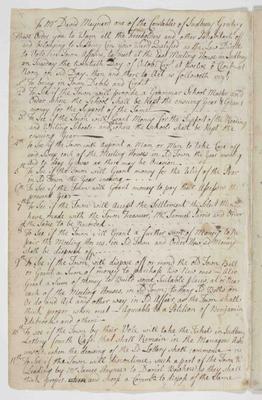 To Mr David Maynard one of the Constables of Sudbury Greeting
These are to you to Warn all the Freeholders and other Inhabitants of
and belonging to Sudbury on your Part Qualified as the Law Directs
to Vote in Town Affairs to meet at the East Meeting House in Sudbury
on
Noon on Sd Day then and there to Act as followeth viz
1st To bring in Town Debts and
2ly To See if the Town will provide a Grammar School Master and
Order where the School Shall be Kept the ensuing year & Grant
money for the Support of the Same
3ly To See if the Town will Grant Money for the Support of the Reading
and Writing Schools and where the Schools Shall be Kept the
ensuing year
4ly To See if the Town will appoint a Man or Men to take Care off
and Sweep each of the Meeting Houses in Sd Town the year ensuing
and to Pay as there may be
5ly To See if the Town will Grant money for the Relief of the Poor
in Sd Town the year ensuing
6ly To See if the Town will Grant money to pay the Assessors the
present year
7ly To See if the Town will accept the Settlement the Select Men
have made with the Town Treasurer, Mr Samuel and Order
the Same to be Recorded
8ly To See if the Town will Grant a further Sum of Money to Re
pair the Meeting Houses in Sd Town and Order how Sd Money
Shall be disposed off
9ly To See if the Town will dispose off or mend the old Town Bell
or Grant a Sum of money to purchase two New ones Also
Grant a Sum of Money to Build some Suitable places, at or on
Each of the Meeting Houses in Sd Town to Hang Sd Bells on
Or do and Act any other way in Sd Affair as the Town Shall
think proper when met Agreeable to a Petition of Benjamin
Estabrooks and others
10ly To see if the Town by their Vote will take the Tickets in Sudbury
Lottery fourth Class that Shall Remain in the Managers Hands
unsold, when the drawing of the Sd Lottery Shall commence
11ly To See if the Town will Discontinue such a part of the Town Way
Leading by Mr James Haynes to Daniel as they Shall
think proper and Keep a Commtee to dispose of the Same